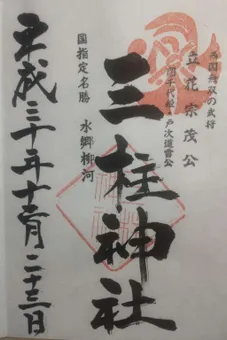 西国無双の武将
立花宗茂公
誾千代姫・戸次道雪公
三柱神社
国指定名勝
水郷柳河
平成三十年十二月二十三日